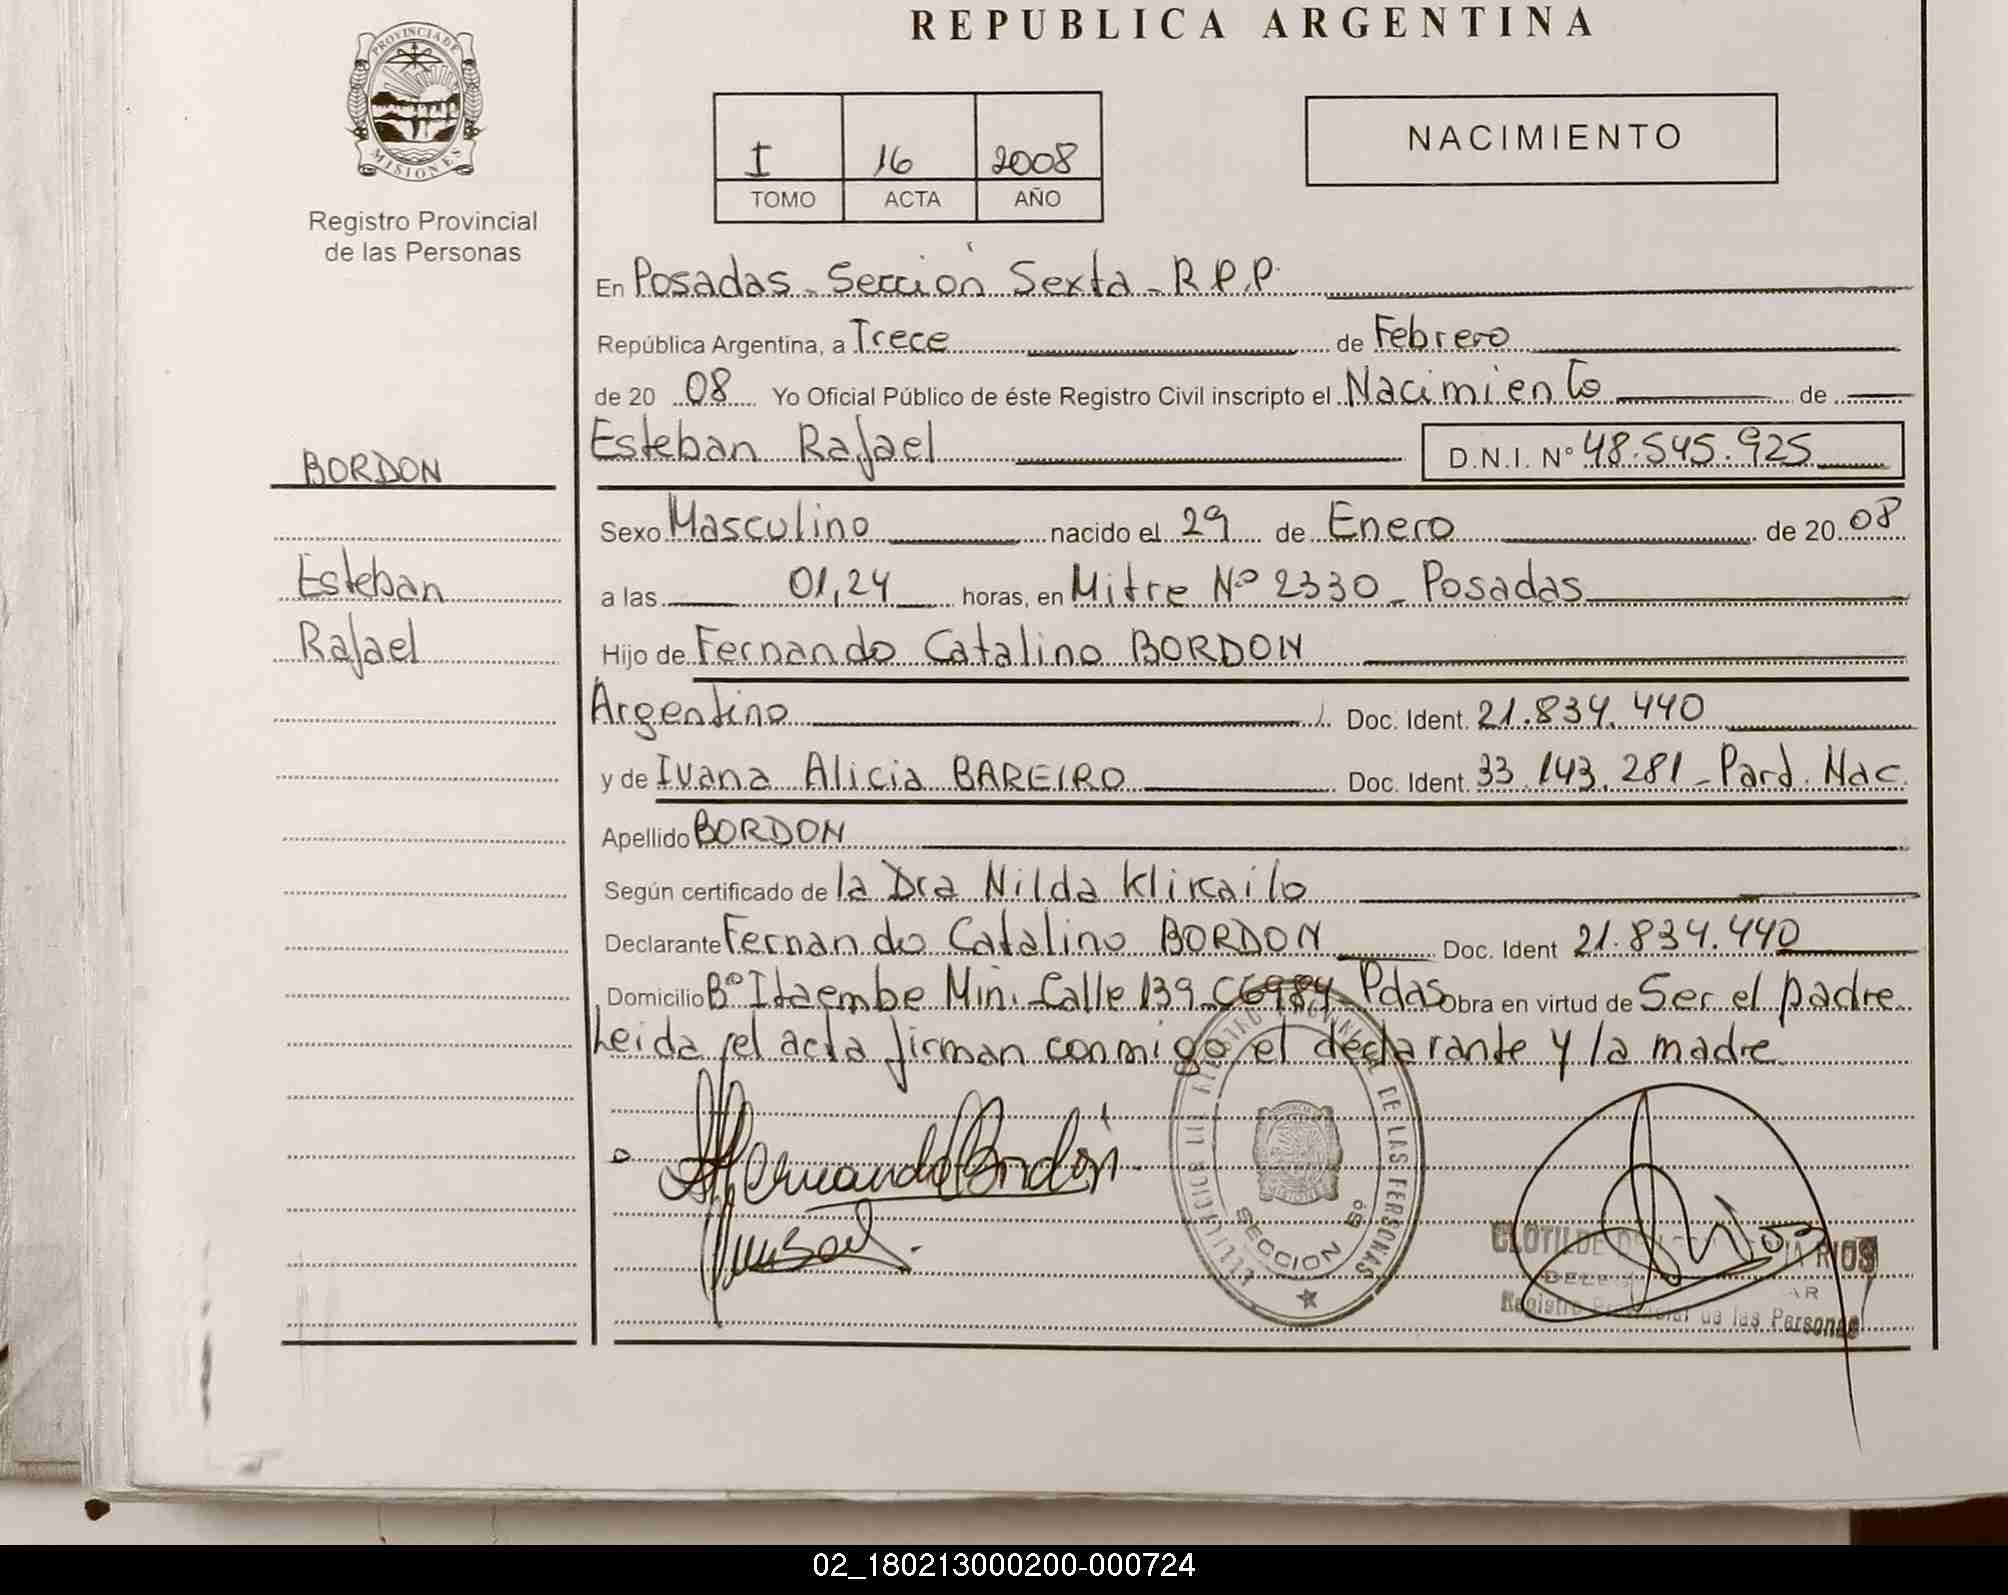 REPUBLICA ARGENTINA
PROVINCIA DE
MISIONES
Registro Provincial
de las Personas
I 16 2008
TOMO ACTA AÑO
NACIMIENTO
En Posadas - Sección Sexta - R.P.P.
República Argentina, a Trece de Febrero
de 20 08 Yo Oficial Público de éste Registro Civil inscripto el Nacimiento de
Esteban Rafael D.N.I. Nº 48.545.925
BORDON
Sexo Masculino nacido el 29 de Enero de 20 08
Esteban
a las 01,24 horas, en Mitre Nº 2330 - Posadas
Rafael
Hijo de Fernando Catalino BORDON
Argentino Doc. Ident. 21.834.440
y de Ivana Alicia BAREIRO Doc. Ident. 33.143.281 - Pard. Nac.
Apellido BORDON
Según certificado de la Dra Nilda Klikailo
Declarante Fernando Catalino BORDON Doc. Ident 21.834.440
Domicilio Bº Itaembe Miní. Calle 139 - C 6984 - Pdas Obra en virtud de Ser el padre
Leida el acta firman conmigo el declarante y la madre
Fernando Bordón
DE LAS PERSONAS
SECCION 6º
CLOTILDE RIOS
Registro Provincial de las Personas
02_180213000200-000724